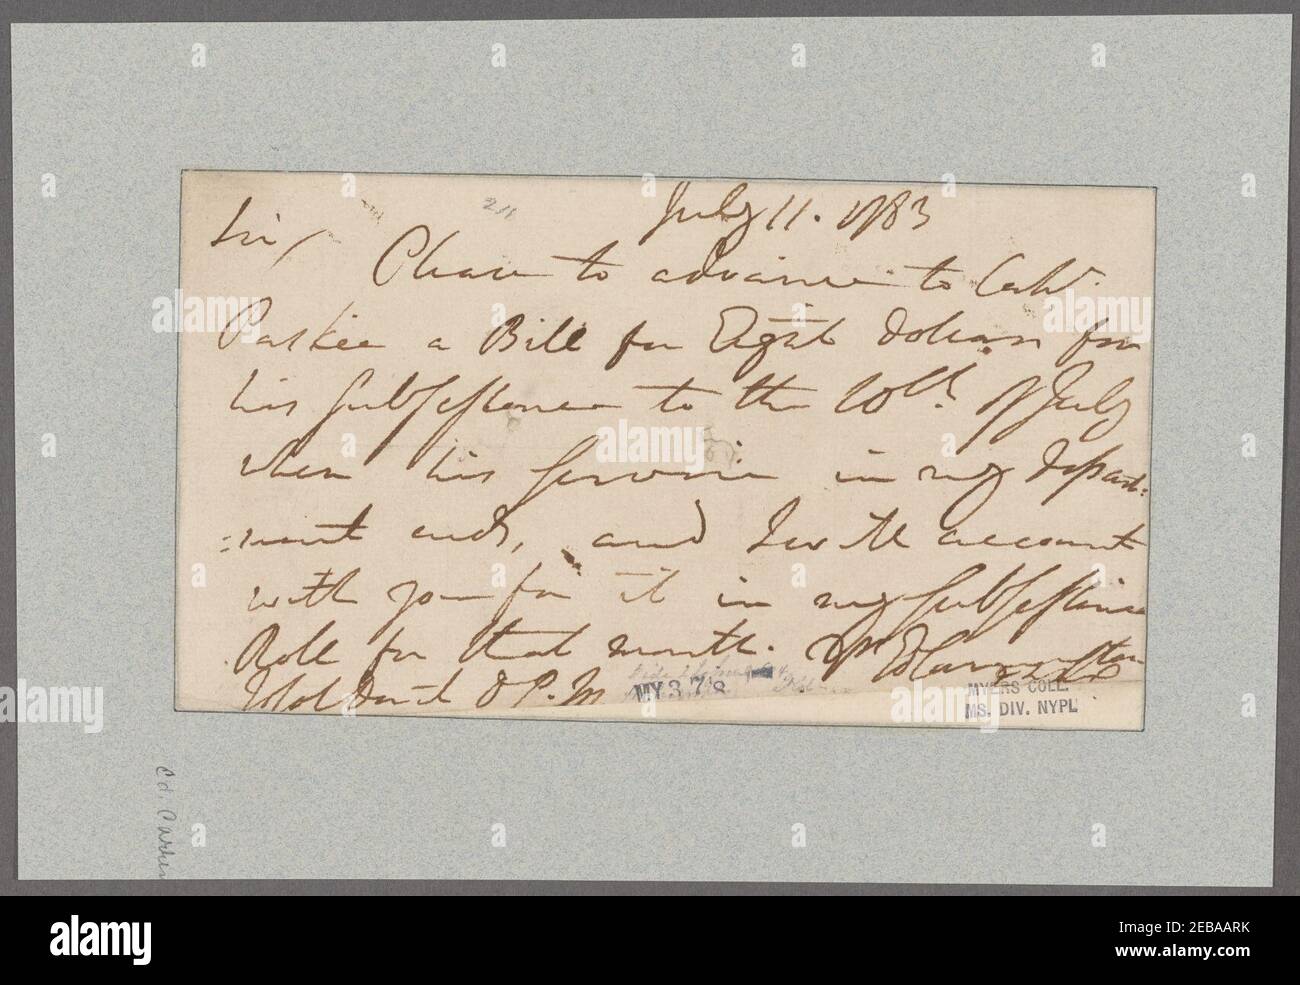 July 11. 1783
Sir,
Please to advance to Capt.
Parker a Bill for Eight dollars for
his Subsistence to the 10th. of July
when his service in my Depart:
:ment ends, and I will account
with you for it in my Subsistence
Roll for that month. Carrington
MY 378
MYERS COLL.
MS. DIV. NYPL
Ed. Carrin
alamy
Image ID: 2EBAARK
www.alamy.com